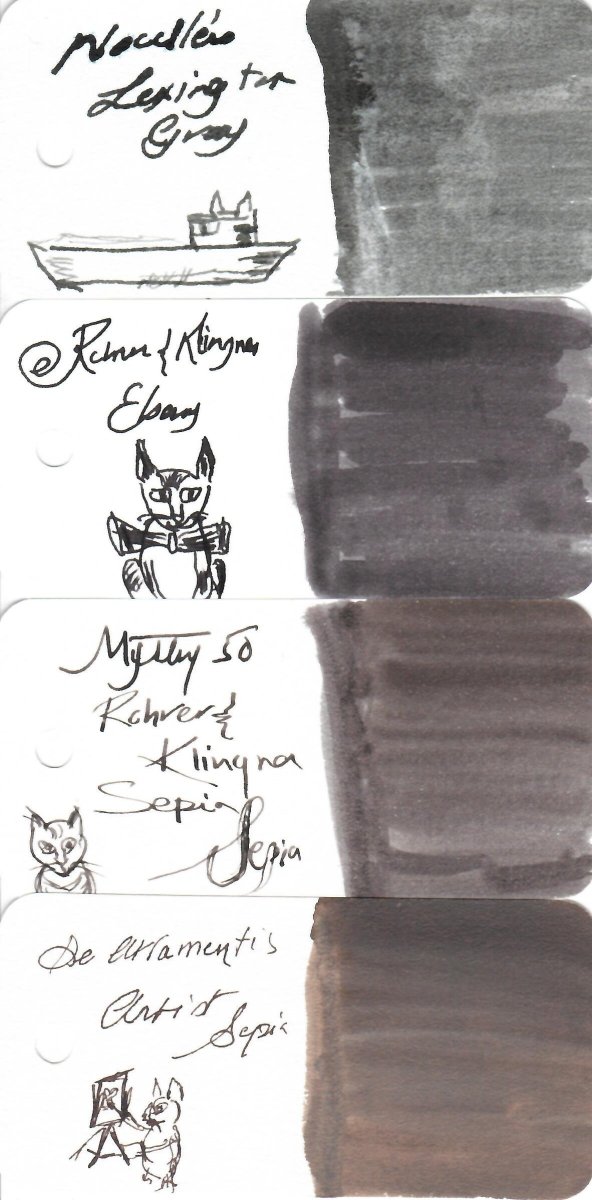 Noodler's
Lexington
Gray
Rohrer & Klingner
Ebony
Mystery 50
Rohrer &
Klingna
Sepia
Sepia
De Atramentis
Artist
Sepia